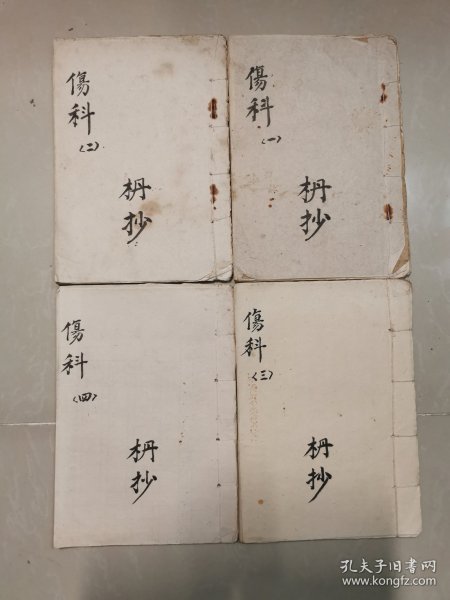 傷科
(一)
枬抄
傷科
(二)
枬抄
傷科
(三)
枬抄
傷科
(四)
枬抄
孔夫子旧书网
www.kongfz.com